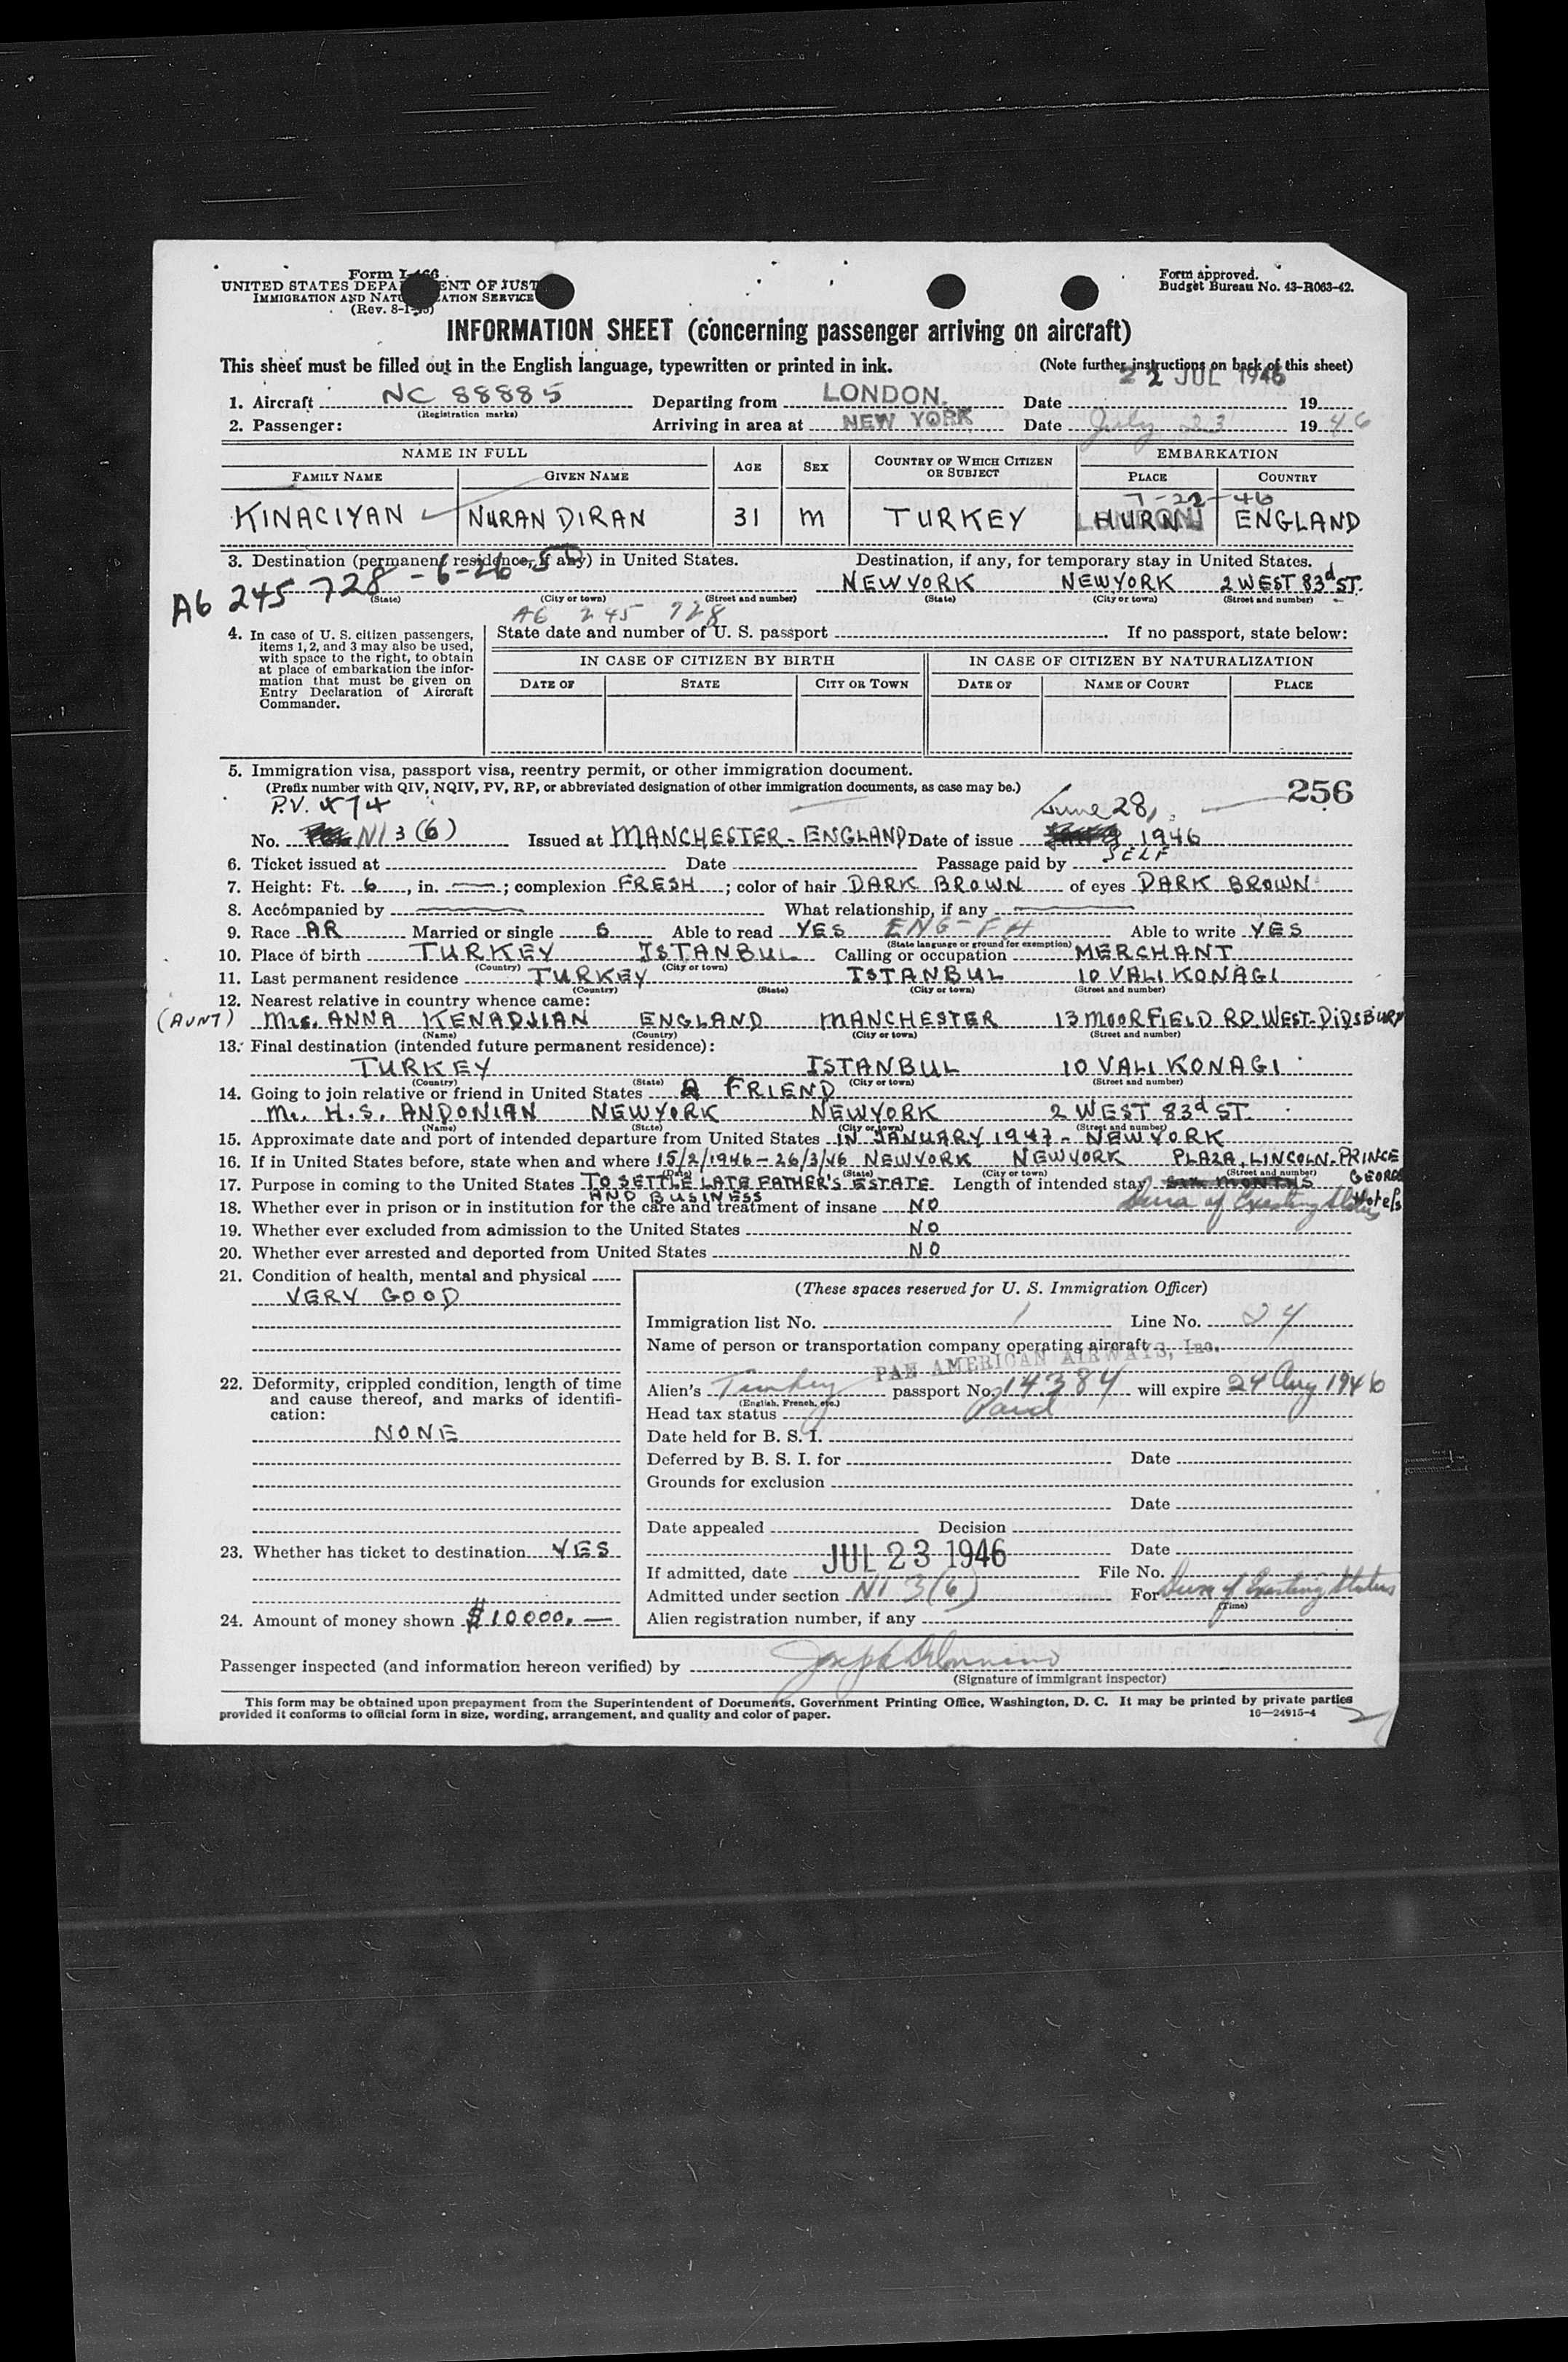 Form I-466
UNITED STATES DEPA ENT OF JUST
IMMIGRATION AND NATU ATION SERVICE
(Rev. 8-1-45)
Form approved.
Budget Bureau No. 43-R063-42.
INFORMATION SHEET (concerning passenger arriving on aircraft)
This sheet must be filled out in the English language, typewritten or printed in ink. (Note further instructions on back of this sheet)
22 JUL 1946
1. Aircraft NC 88885 Departing from LONDON. Date 19
(Registration marks)
2. Passenger: Arriving in area at NEW YORK Date July 23 1946
NAME IN FULL AGE SEX COUNTRY OF WHICH CITIZEN OR SUBJECT EMBARKATION
FAMILY NAME GIVEN NAME PLACE COUNTRY
7-22-46
KINACIYAN NURAN DIRAN 31 M TURKEY HURN ENGLAND
3. Destination (permanent residence, if any) in United States. Destination, if any, for temporary stay in United States.
A6 245 728 - 6-26-50 NEWYORK NEWYORK 2 WEST 83d ST.
(State) (City or town) (Street and number) (State) (City or town) (Street and number)
A6 245 728
4. In case of U. S. citizen passengers, items 1, 2, and 3 may also be used, with space to the right, to obtain at place of embarkation the information that must be given on Entry Declaration of Aircraft Commander.
State date and number of U. S. passport If no passport, state below:
IN CASE OF CITIZEN BY BIRTH IN CASE OF CITIZEN BY NATURALIZATION
DATE OF STATE CITY OR TOWN DATE OF NAME OF COURT PLACE
5. Immigration visa, passport visa, reentry permit, or other immigration document.
(Prefix number with QIV, NQIV, PV, RP, or abbreviated designation of other immigration documents, as case may be.) 256
P.V. 474 June 28,
No. NI 3 (6) Issued at MANCHESTER - ENGLAND Date of issue 1946
6. Ticket issued at Date Passage paid by SELF
7. Height: Ft. 6, in. —; complexion FRESH; color of hair DARK BROWN of eyes DARK BROWN
8. Accompanied by — What relationship, if any —
9. Race AR Married or single S Able to read YES ENG-FH Able to write YES
(State language or ground for exemption)
10. Place of birth TURKEY ISTANBUL Calling or occupation MERCHANT
(Country) (City or town)
11. Last permanent residence TURKEY ISTANBUL 10 VALI KONAGI
(Country) (State) (City or town) (Street and number)
12. Nearest relative in country whence came:
(AUNT) Mrs. ANNA KENADJIAN ENGLAND MANCHESTER 13 MOORFIELD RD. WEST-DIDSBURY
(Name) (Country) (City or town) (Street and number)
13. Final destination (intended future permanent residence):
TURKEY ISTANBUL 10 VALI KONAGI
(Country) (State) (City or town) (Street and number)
14. Going to join relative or friend in United States A FRIEND
Mr. H.S. ANDONIAN NEWYORK NEWYORK 2 WEST 83d ST.
(Name) (State) (City or town) (Street and number)
15. Approximate date and port of intended departure from United States IN JANUARY 1947 - NEWYORK
16. If in United States before, state when and where 15/2/1946 - 26/3/46 NEWYORK NEWYORK PLAZA, LINCOLN, PRINCE GEORGE Hotels
(Date) (State) (City or town) (Street and number)
17. Purpose in coming to the United States TO SETTLE LATE FATHER'S ESTATE Length of intended stay SIX MONTHS
AND BUSINESS Dura of Existing Status
18. Whether ever in prison or in institution for the care and treatment of insane NO
19. Whether ever excluded from admission to the United States NO
20. Whether ever arrested and deported from United States NO
21. Condition of health, mental and physical
VERY GOOD
22. Deformity, crippled condition, length of time and cause thereof, and marks of identification:
NONE
23. Whether has ticket to destination YES
24. Amount of money shown $10000.—
(These spaces reserved for U. S. Immigration Officer)
Immigration list No. 1 Line No. 24
Name of person or transportation company operating aircraft
PAN AMERICAN AIRWAYS, Inc.
Alien's Turkey passport No. 14384 will expire 24 Aug 1946
(English, French, etc.)
Head tax status Paid
Date held for B. S. I.
Deferred by B. S. I. for Date
Grounds for exclusion
Date
Date appealed Decision
Date
If admitted, date JUL 23 1946 File No.
Admitted under section NI 3(6) For Dura of Existing Status
(Time)
Alien registration number, if any
Passenger inspected (and information hereon verified) by Joseph
(Signature of immigrant inspector)
This form may be obtained upon prepayment from the Superintendent of Documents, Government Printing Office, Washington, D. C. It may be printed by private parties
provided it conforms to official form in size, wording, arrangement, and quality and color of paper. 16—24915-4